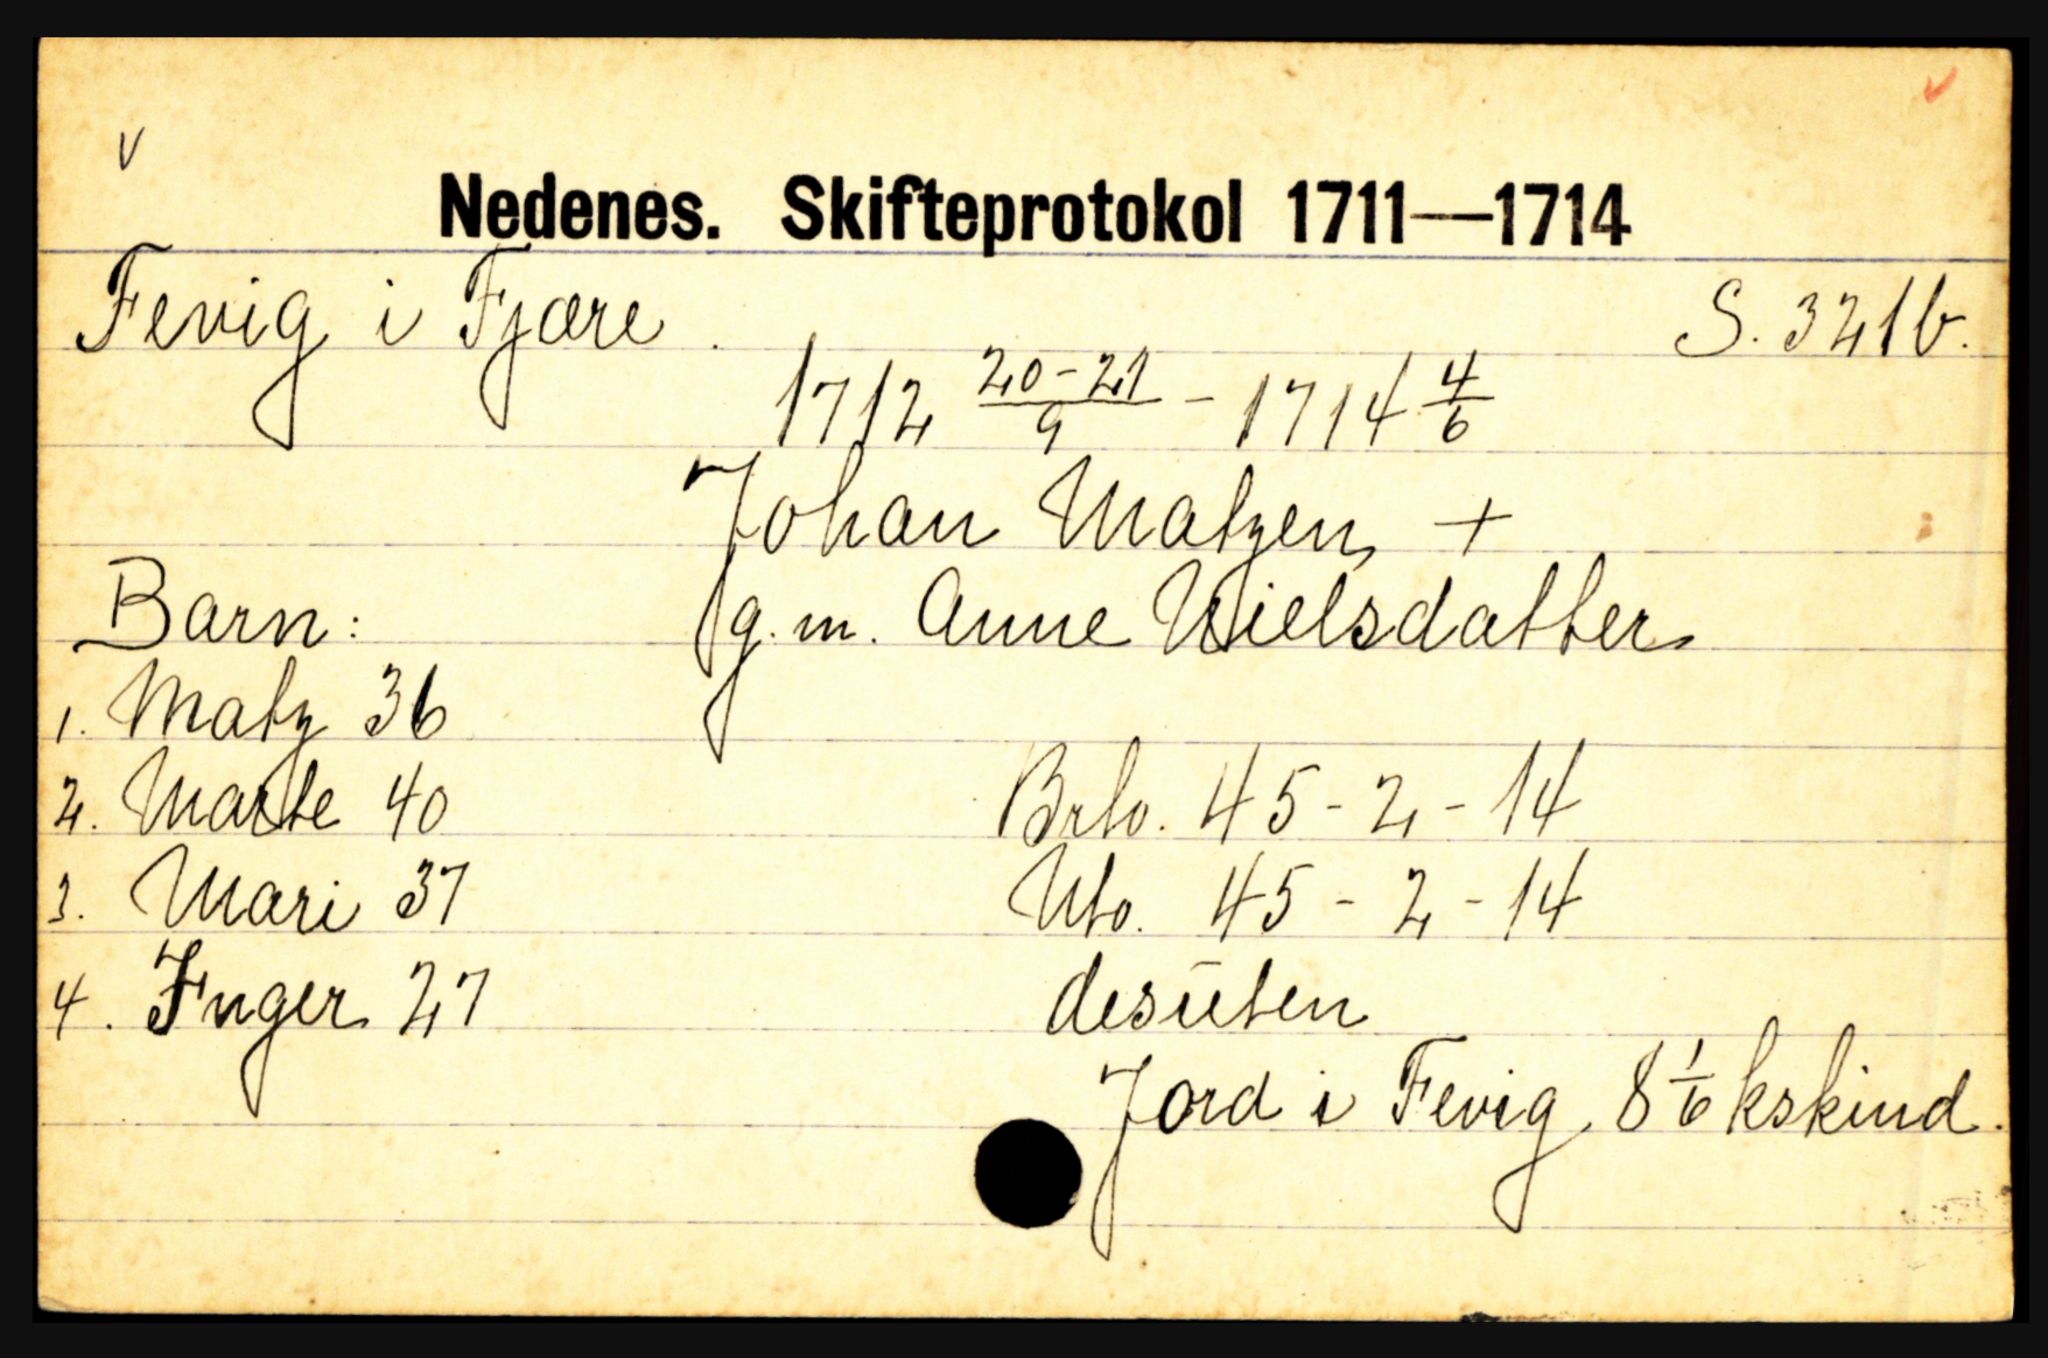 V
Nedenes. Skifteprotokol 1711—1714
Fevig i Fjære.
S. 321b.
1712 20-21/9 - 1714 4/6
Johan Matzen +
g.m. Anne Nielsdatter
Barn:
1. Matz 36
2. Marte 40
3. Mari 37
4. Inger 27
Brto. 45-2-14
Nto. 45-2-14
desuten
Jord i Fevig 8 1/6 kskind.